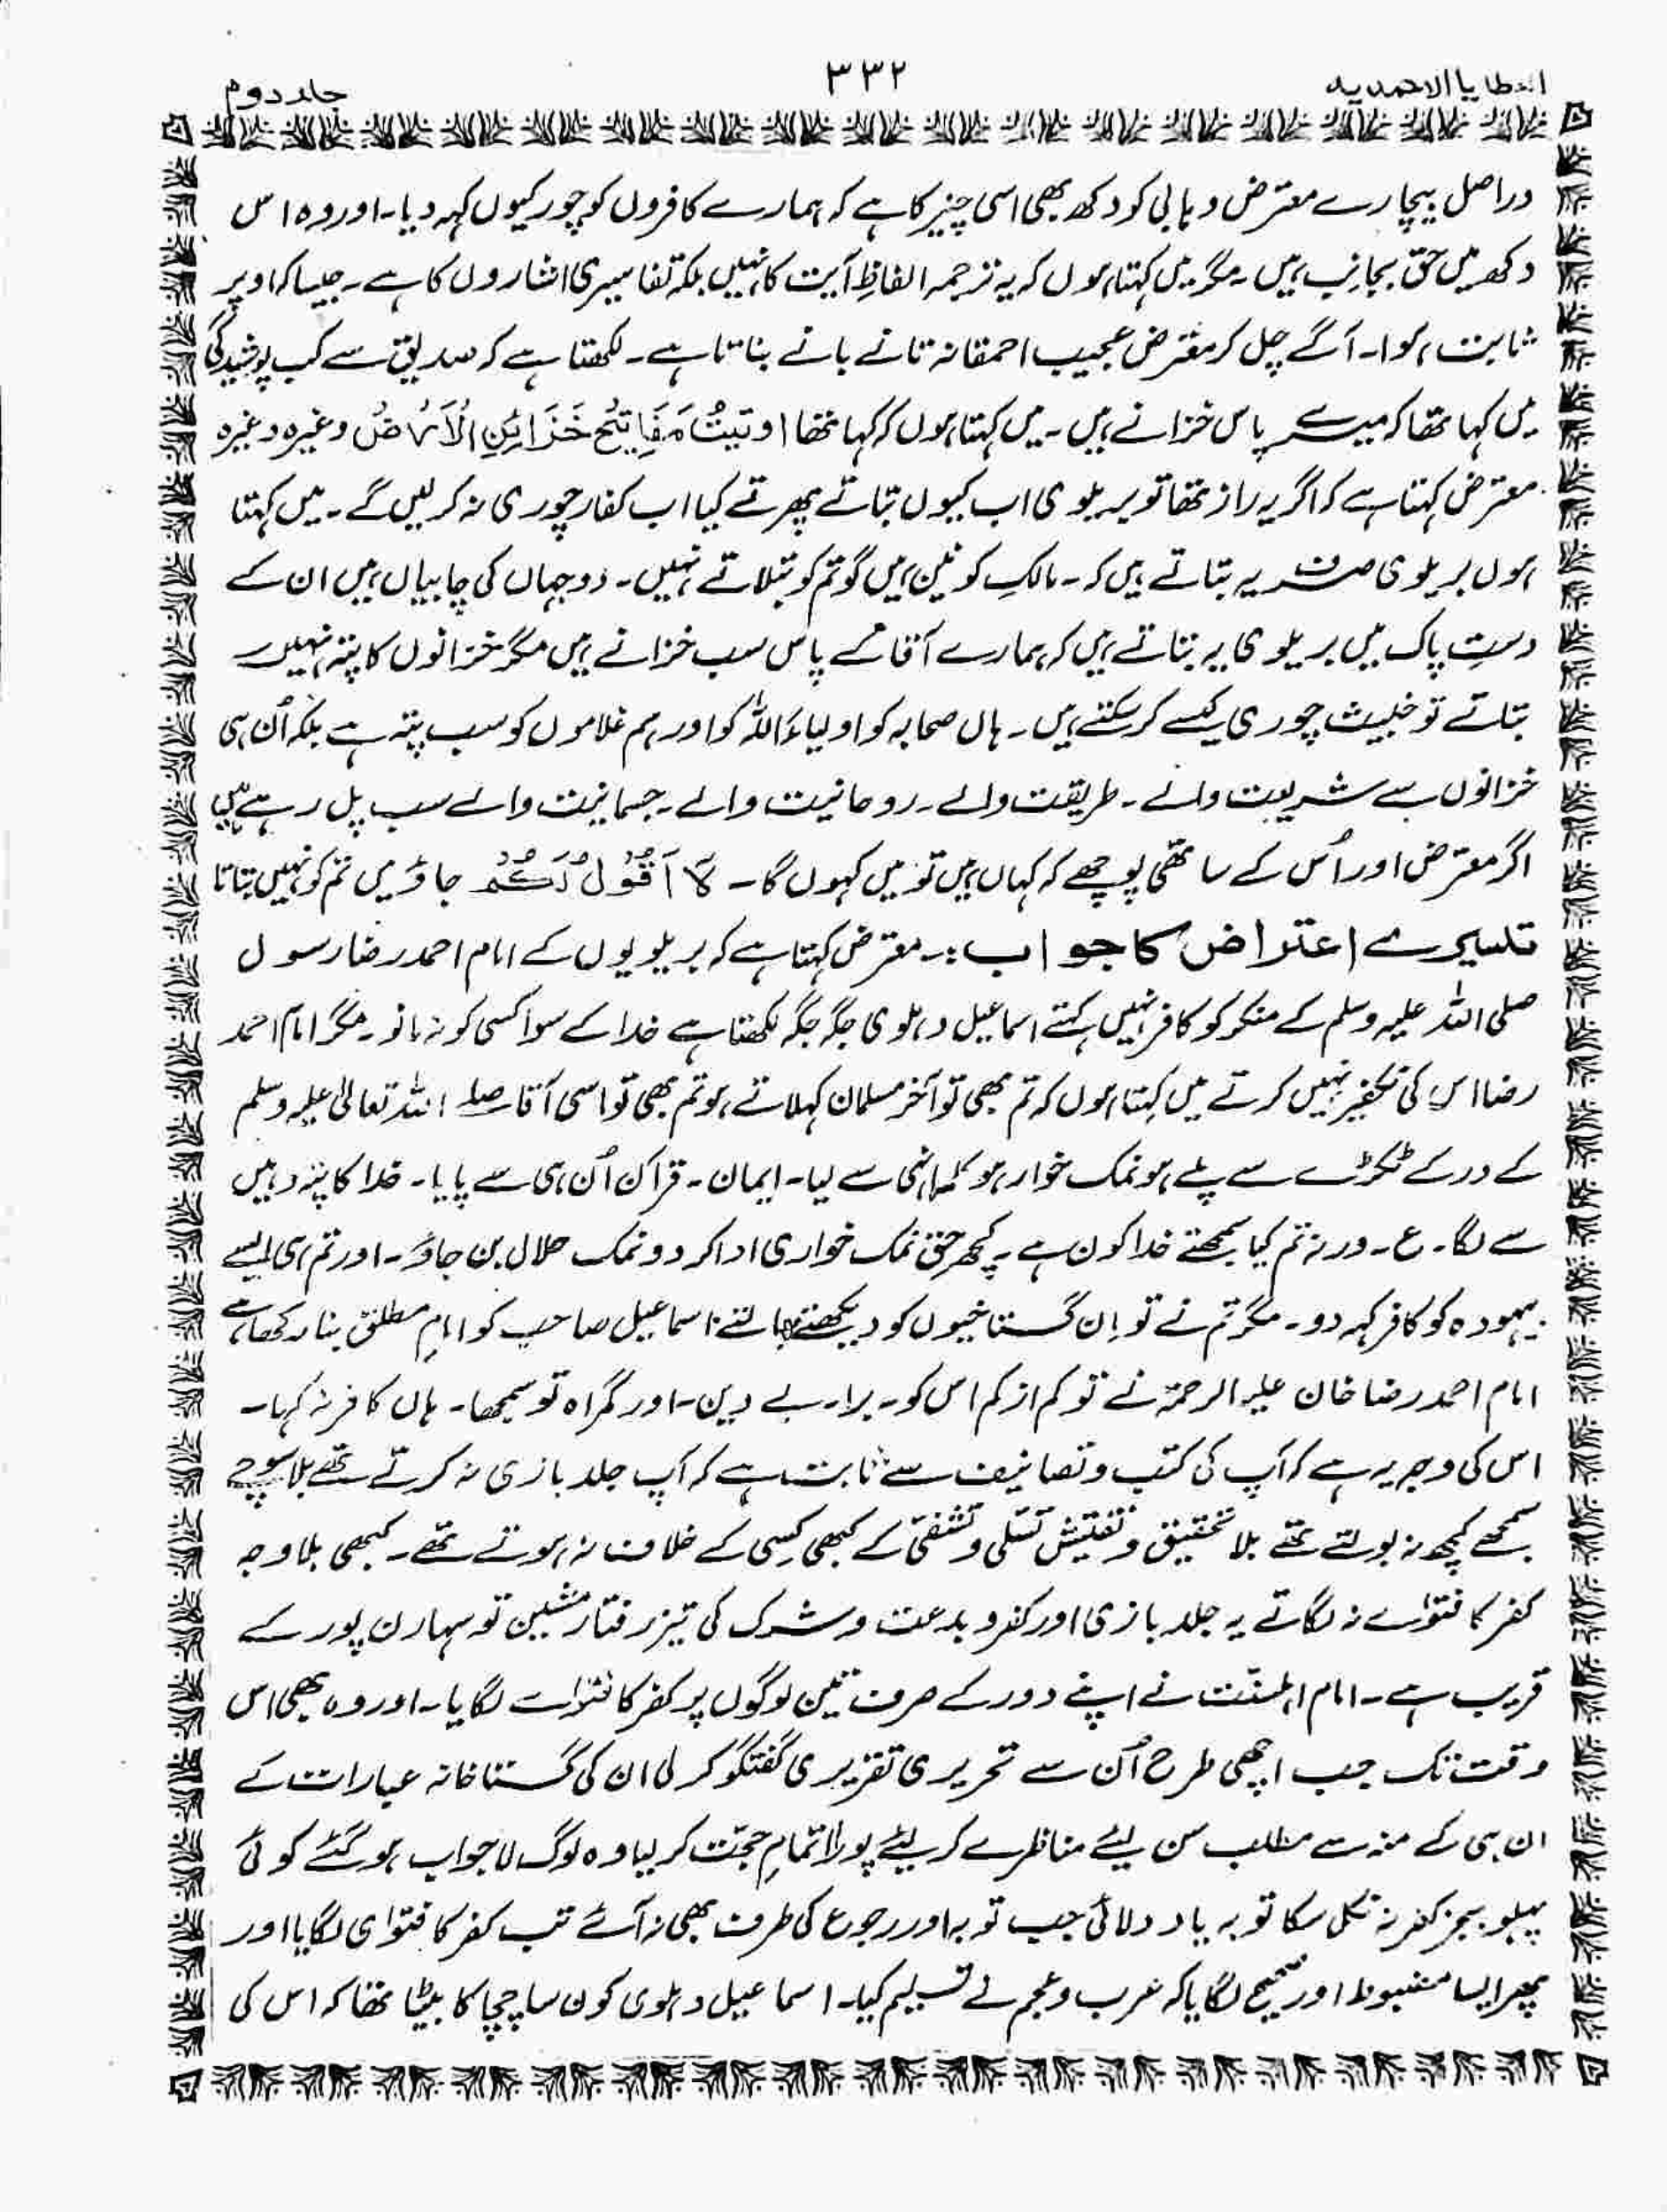 العطایا الاحمدیہ
۳۳۲
جلد دوم
دراصل بیچارے معترض وہابی کو دکھ بھی اسی چیز کا ہے کہ ہمارے کافروں کو چور کیوں کہہ دیا۔ اور وہ اس
دکھ میں حق بجانب ہیں۔ مگر میں کہتا ہوں کہ یہ ترجمہ الفاظِ آیت کا نہیں بلکہ تفاسیری اشاروں کا ہے۔ جیسا کہ اوپر
ثابت ہوا۔ آگے چل کر معترض عجیب احمقانہ تانے بانے بناتا ہے۔ لکھتا ہے کہ صدیق سے کب پوشیدگی
میں کہا تھا کہ میرے پاس خزانے ہیں۔ میں کہتا ہوں کہ کہا تھا اوتیتُ مَفَاتِیْحَ خَزَائِنِ الْاَرْضُ وغیرہ وغیرہ
معترض کہتا ہے کہ اگر یہ راز تھا تو بریلوی اب کیوں بتاتے پھرتے کیا اب کفار چوری نہ کرلیں گے۔ میں کہتا
ہوں بریلوی صرف یہ بتاتے ہیں کہ۔ مالکِ کونین ہیں گو تم کو بتلاتے نہیں۔ دو جہاں کی چابیاں ہیں ان کے
دستِ پاک میں بریلوی یہ بتاتے ہیں کہ ہمارے آقا کے پاس سب خزانے ہیں مگر خزانوں کا پتہ نہیں
بتاتے تو خبیث چوری کیسے کر سکتے ہیں۔ ہاں صحابہ کو اولیاءَاللہ کو اور ہم غلاموں کو سب پتہ ہے بلکہ اُن ہی
خزانوں سے شریعت والے۔ طریقت والے۔ روحانیت والے۔ جسمانیت والے سب پل رہے ہیں
اگر معترض اور اُس کے ساتھی پوچھے کہ کہاں ہیں تو میں کہوں گا۔ لَا اَقُوْلُ لَکُمْ جاؤ میں تم کو نہیں بتاتا
تیسرے اعتراض کا جواب :۔ معترض کہتا ہے کہ بریلویوں کے امام احمد رضا رسول
صلی اللہ علیہ وسلم کے منکر کو کافر نہیں کہتے اسماعیل دہلوی جگہ جگہ لکھتا ہے خدا کے سوا کسی کو نہ مانو۔ مگر امام احمد
رضا اس کی تکفیر نہیں کرتے میں کہتا ہوں کہ تم بھی تو آخر مسلمان کہلاتے ہو تم بھی تو اسی آقا صلے اللہ تعالیٰ علیہ وسلم
کے در کے ٹکڑے سے پلے ہو نمک خوار ہو کلمہ انہی سے لیا۔ ایمان۔ قرآن اُن ہی سے پایا۔ خدا کا پتہ وہیں
سے لگا۔ ع۔ ورنہ تم کیا سمجھتے خدا کون ہے۔ کچھ حق نمک خواری ادا کر دو نمک حلال بن جاؤ۔ اور تم ہی ایسے
بیہودہ کو کافر کہہ دو۔ مگر تم نے تو اِن گستاخیوں کو دیکھتے بھالتے اسماعیل صاحب کو امامِ مطلق بنا رکھا ہے
امام احمد رضا خان علیہ الرحمۃ نے تو کم از کم اس کو۔ برا۔ بے دین۔ اور گمراہ تو سمجھا۔ ہاں کافر نہ کہا۔
اس کی وجہ یہ ہے کہ آپ کی کتب و تصانیف سے ثابت ہے کہ آپ جلد بازی نہ کرتے تھے بلا سوچے
سمجھے کچھ نہ بولتے تھے بلا تحقیق و تفتیش تسلی و تشفی کے کبھی کِسی کے خلاف نہ ہوتے تھے۔ کبھی بلا وجہ
کفر کا فتوٰے نہ لگاتے یہ جلد بازی اور کفر و بدعت و شرک کی تیز رفتار مشین تو سہارن پور کے
قریب ہے۔ امام اہلسنّت نے اپنے دور کے صرف تین لوگوں پر کفر کا فتوٰے لگایا۔ اور وہ بھی اس
وقت تک جب اچھی طرح اُن سے تحریری تقریری گفتگو کر لی ان کی گستاخانہ عبارات کے
ان ہی کے منہ سے مطلب سن لیئے مناظرے کر لیئے پورا اتمامِ حجّت کر لیا وہ لوگ لاجواب ہو گئے کوئی
پہلو بجز کفر نہ نکل سکا توبہ یاد دلائی جب توبہ اور رجوع کی طرف بھی نہ آئے تب کفر کا فتوٰی لگایا اور
پھر ایسا مضبوط اور صحیح لگایا کہ عرب و عجم نے تسلیم کیا۔ اسماعیل دہلوی کون سا چچا کا بیٹا تھا کہ اس کی